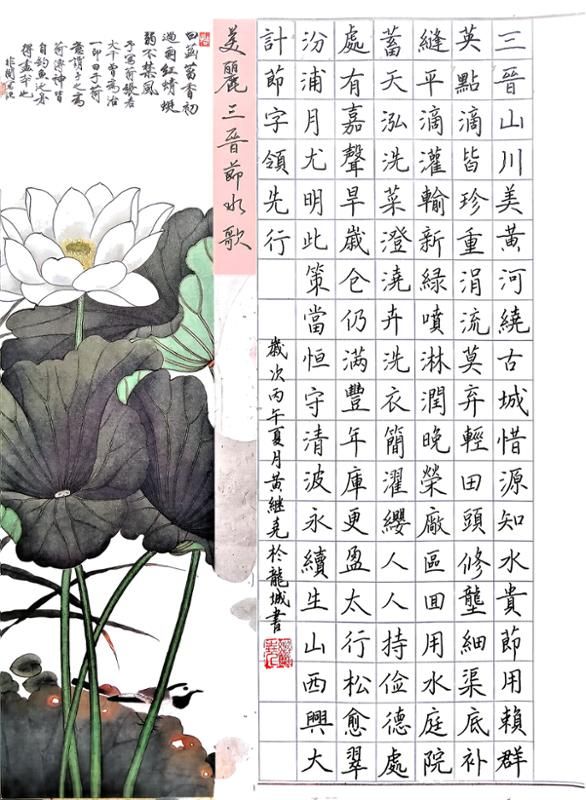 美麗三晉節水歌
三晉山川美黃河繞古城惜源知水貴節用賴群
英點滴皆珍重涓流莫弃輕田頭修壟細渠底补
縫平滴灌輸新緑噴淋潤晚榮廠區囬用水庭院
蓄天泓洗菜澄澆卉洗衣簡濯纓人人持俭德處
處有嘉聲旱歲仓仍满豐年庫更盈太行松愈翠
汾浦月尤明此策當恒守清波永續生山西興大
計節字領先行
歲次丙午夏月黃继尧於龍城書
白菡萏香初
過雨紅蜻蜓
弱不禁風
予寫荷張
大千曾為治
一印曰于荷